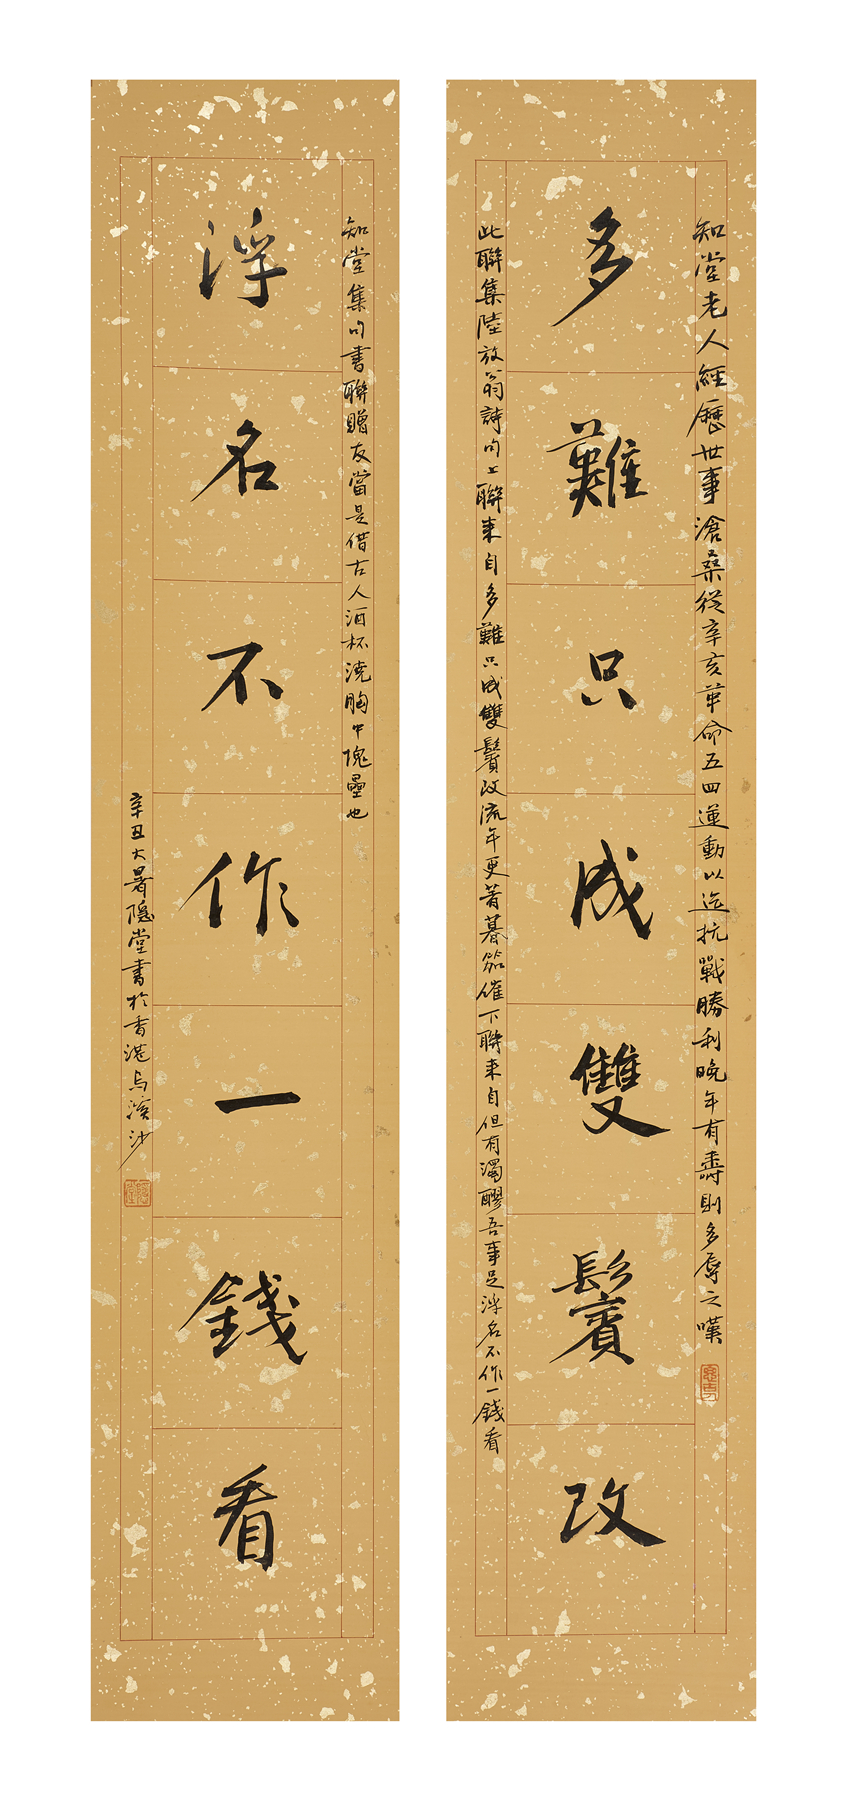 知堂老人經歷世事滄桑從辛亥革命五四運動以迄抗戰勝利晚年有壽則多辱之嘆
多難只成雙鬢改
此聯集陸放翁詩句上聯來自多難只成雙鬢改流年更著暮笳催下聯來自但有濁醪吾事足浮名不作一錢看
知堂集句書聯贈友當是借古人酒杯澆胸中塊壘也
浮名不作一錢看
辛丑大暑隱堂書於香港烏溪沙